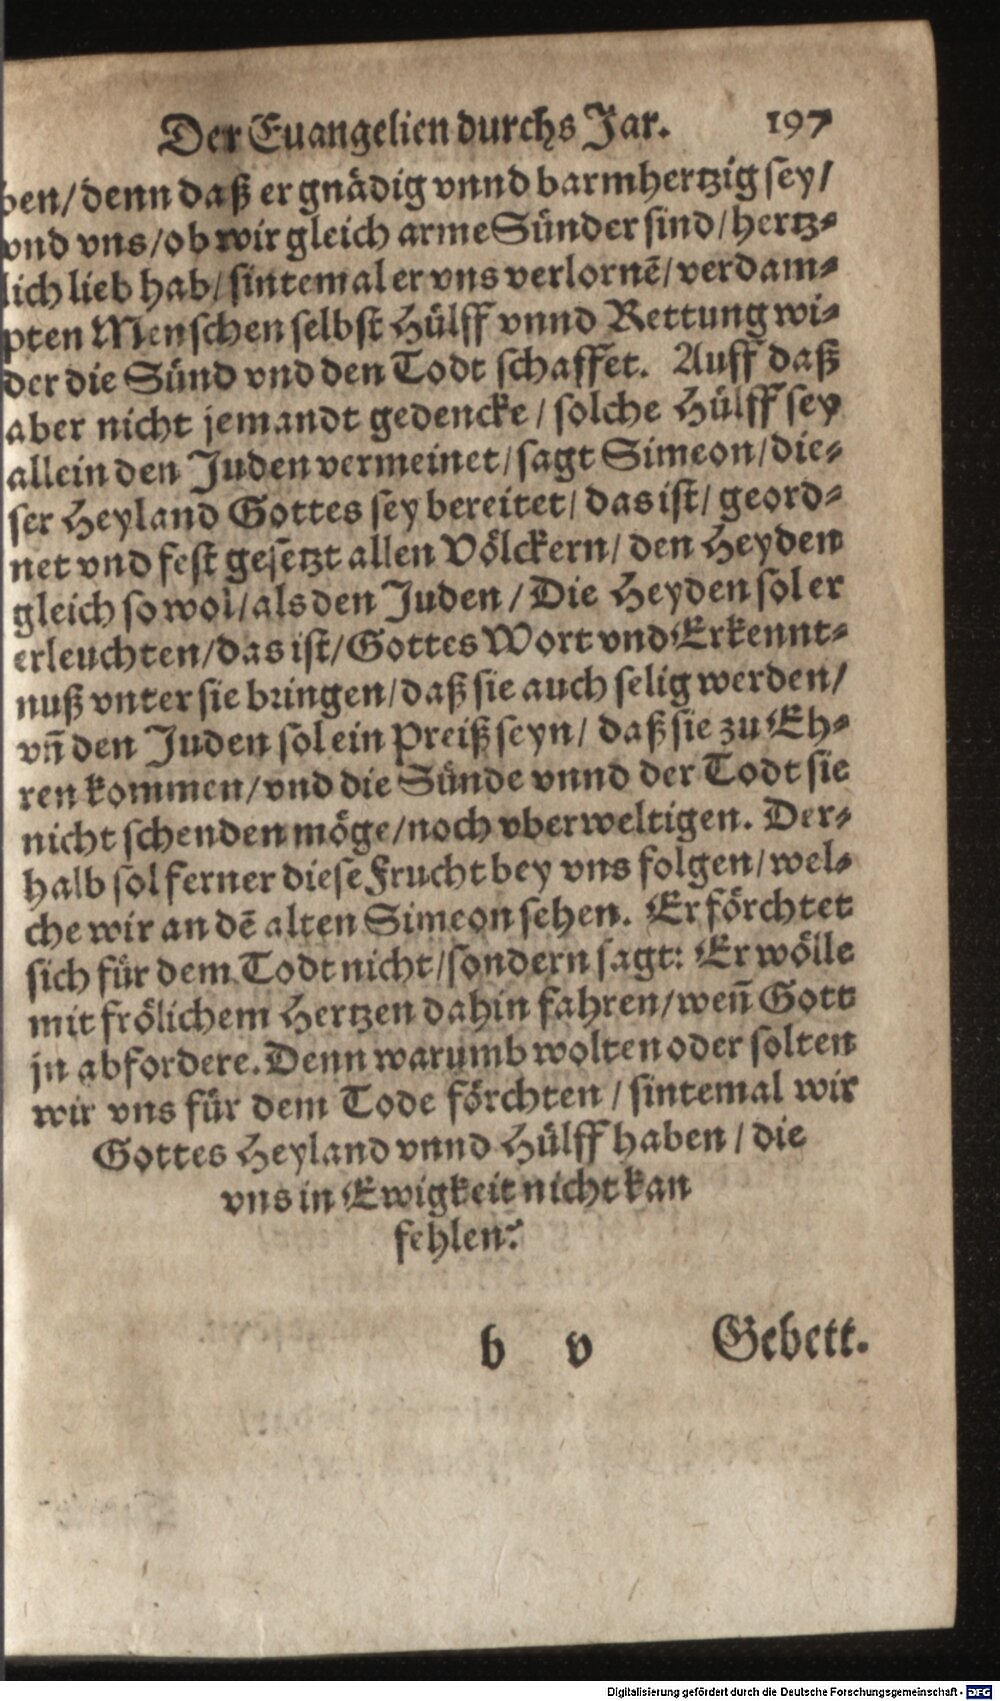 Der Euangelien durchs Jar. 197
ben/ denn daß er gnädig vnnd barmhertzig sey/
vnd vns/ ob wir gleich arme Sünder sind/ hertz-
lich lieb hab/ sintemal er vns verlornē/ verdam-
pten Menschen selbst Hülff vnnd Rettung wi-
der die Sünd vnd den Todt schaffet. Auff daß
aber nicht jemandt gedencke/ solche Hülff sey
allein den Juden vermeinet/ sagt Simeon/ die-
ser Heyland Gottes sey bereitet/ das ist/ geord-
net vnd fest gesetzt allen Völckern/ den Heyden
gleich so wol/ als den Juden/ Die Heyden sol er
erleuchten/ das ist/ Gottes Wort vnd Erkennt-
nuß vnter sie bringen/ daß sie auch selig werden/
vn̄ den Juden sol ein Preiß seyn/ daß sie zu Eh-
ren kommen/ vnd die Sünde vnnd der Todt sie
nicht schenden möge/ noch vberweltigen. Der-
halb sol ferner diese Frucht bey vns folgen/ wel-
che wir an dē alten Simeon sehen. Er förchtet
sich für dem Todt nicht/ sondern sagt: Er wölle
mit frölichem Hertzen dahin fahren/ wen̄ Gott
jn abfordere. Denn warumb wolten oder solten
wir vns für dem Tode förchten/ sintemal wir
Gottes Heyland vnnd Hülff haben/ die
vns in Ewigkeit nicht kan
fehlen?
b v Gebett.
Digitalisierung gefördert durch die Deutsche Forschungsgemeinschaft - DFG